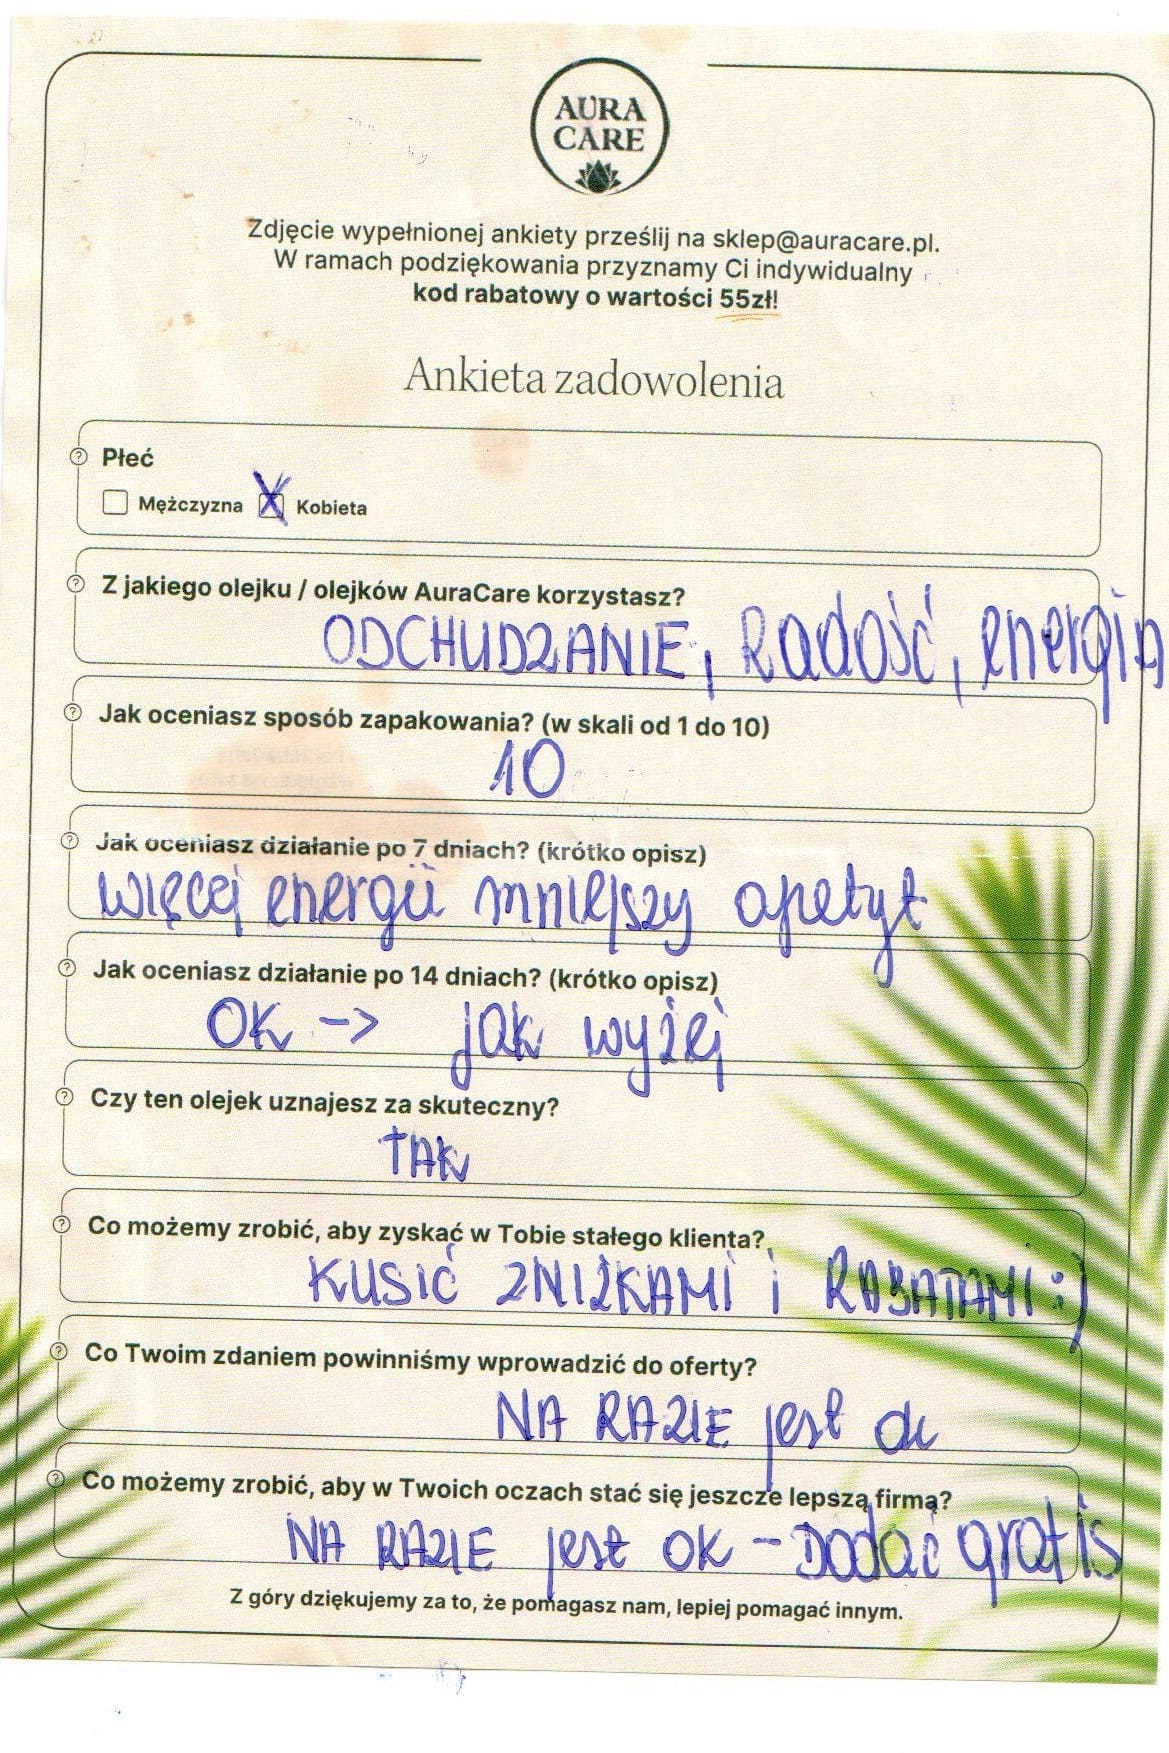 AURA
CARE
Zdjęcie wypełnionej ankiety prześlij na sklep@auracare.pl.
W ramach podziękowania przyznamy Ci indywidualny
kod rabatowy o wartości 55zł!
Ankieta zadowolenia
Płeć
Mężczyzna X Kobieta
Z jakiego olejku / olejków AuraCare korzystasz?
ODCHUDZANIE, Radość, energia
Jak oceniasz sposób zapakowania? (w skali od 1 do 10)
10
Jak oceniasz działanie po 7 dniach? (krótko opisz)
więcej energii mniejszy apetyt
Jak oceniasz działanie po 14 dniach? (krótko opisz)
OK -> jak wyżej
Czy ten olejek uznajesz za skuteczny?
TAK
Co możemy zrobić, aby zyskać w Tobie stałego klienta?
KUSIĆ ZNIŻKAMI i RABATAMI :)
Co Twoim zdaniem powinniśmy wprowadzić do oferty?
NA RAZIE jest ok
Co możemy zrobić, aby w Twoich oczach stać się jeszcze lepszą firmą?
NA RAZIE jest OK - Dodać gratis
Z góry dziękujemy za to, że pomagasz nam, lepiej pomagać innym.